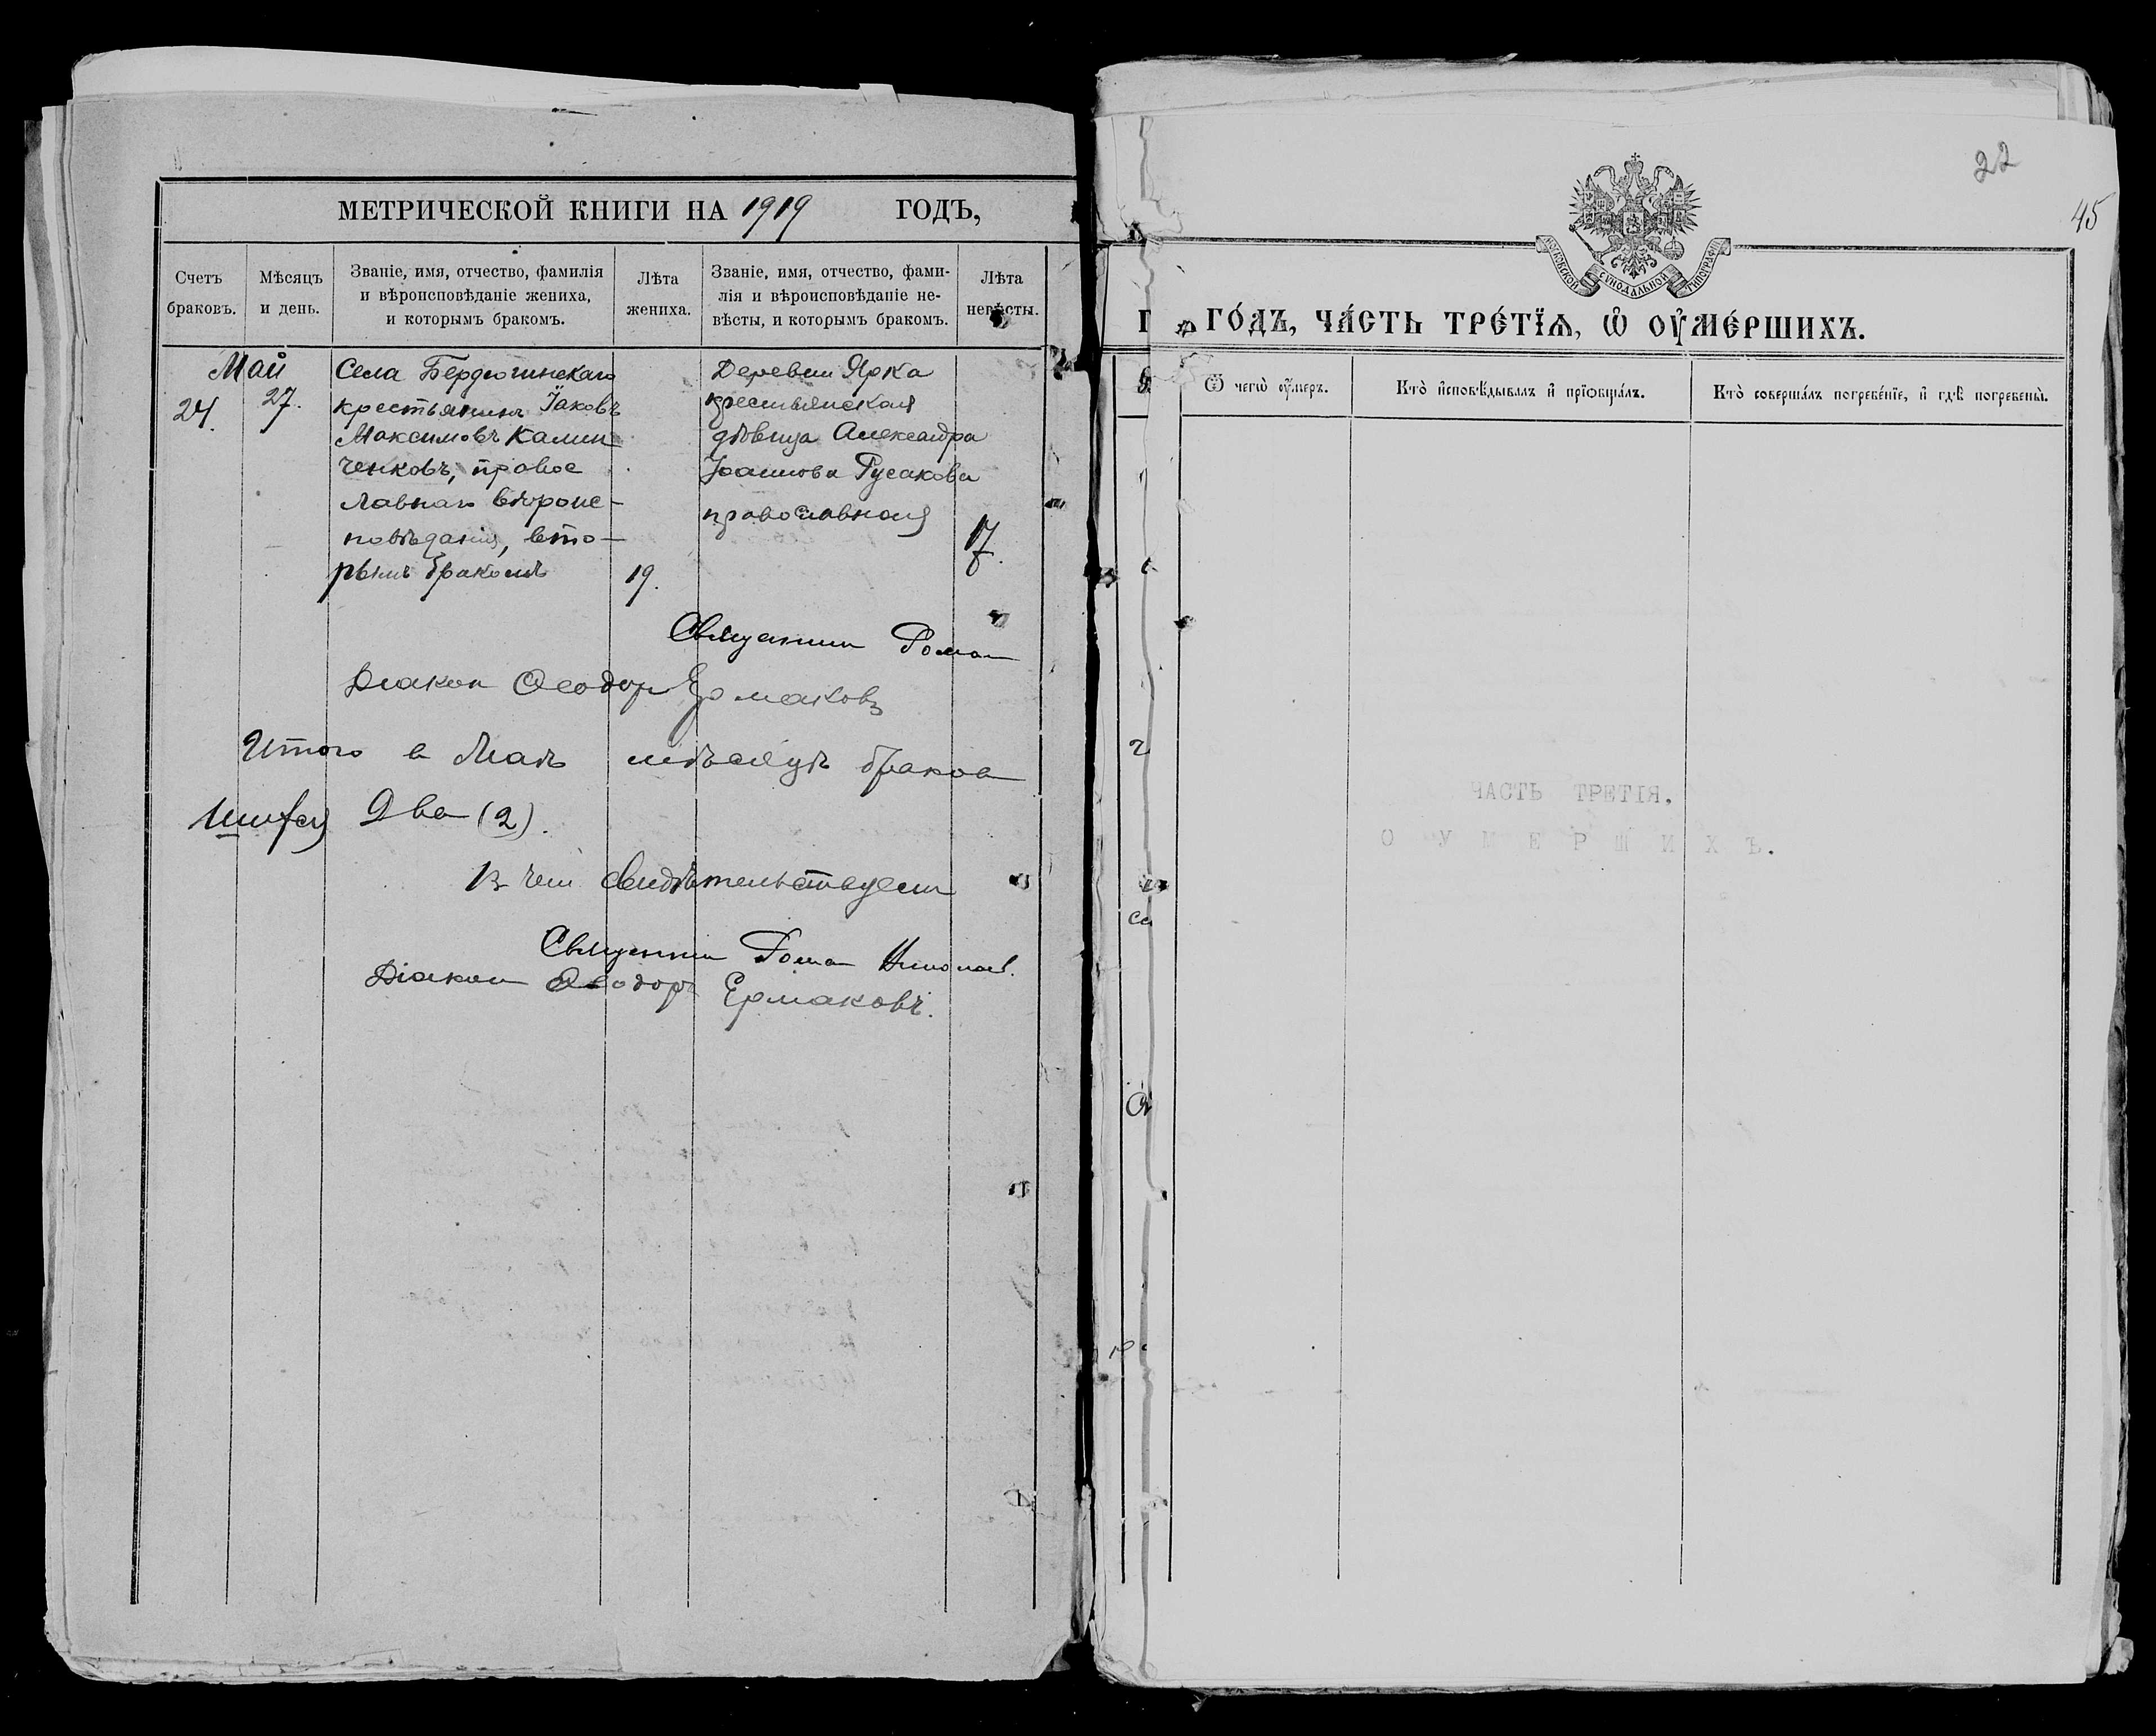 МЕТРИЧЕСКОЙ КНИГИ НА 1919 ГОДЪ,
Счетъ браковъ.
Мѣсяцъ и день.
Званіе, имя, отчество, фамилія
и вѣроисповѣданіе жениха,
и которымъ бракомъ.
Лѣта жениха.
Званіе, имя, отчество, фами-
лія и вѣроисповѣданіе не-
вѣсты, и которымъ бракомъ.
Лѣта невѣсты.
Май
24.
27.
Села Бердюгинскаго
крестьянинъ Іаковъ
Максимовъ Калин
ченковъ, правос
лавнаго вѣроис-
повѣданія, вто-
рымъ бракомъ
19.
Деревни Ярка
крестьянская
дѣвица Александра
Іоаннова Русакова
православная
17.
Священник Роман
Діакон Ѳеодор Ермаковъ
Итого в Маѣ мѣсяцѣ браков
Два (2).
В чем свидѣтельствуем
Священник Роман
Діакон Ѳеодоръ Ермаковъ.
22
45
МОСКОВСКОЙ СѴНОДАЛЬНОЙ ТИПОГРАФІИ
ГО́ДЪ, ЧА́СТЬ ТРЕ́ТЇѦ, Ѽ ОУ҆МЕ́РШИХЪ.
Ѿ чегѡ̀ оу҆́меръ.
Кто̀ и҆сповѣ́дывалъ и҆ прїѡбща́лъ.
Кто̀ соверша́лъ погребе́нїе, и҆ гдѣ̀ погребены̀.
ЧАСТЬ ТРЕТІЯ.
О УМЕРШИХЪ.